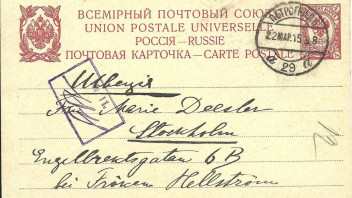 ВСЕМІРНЫЙ ПОЧТОВЫЙ СОЮЗ
UNION POSTALE UNIVERSELLE
РОССІЯ — RUSSIE
ПОЧТОВАЯ КАРТОЧКА — CARTE POSTALE
ПЕТРОГРАДЪ
22 МАР. 15
8
29
Швеція
Marie Deesler
Stockholm
Engelbrektsgatan 6 B
bei Fröken Hellström